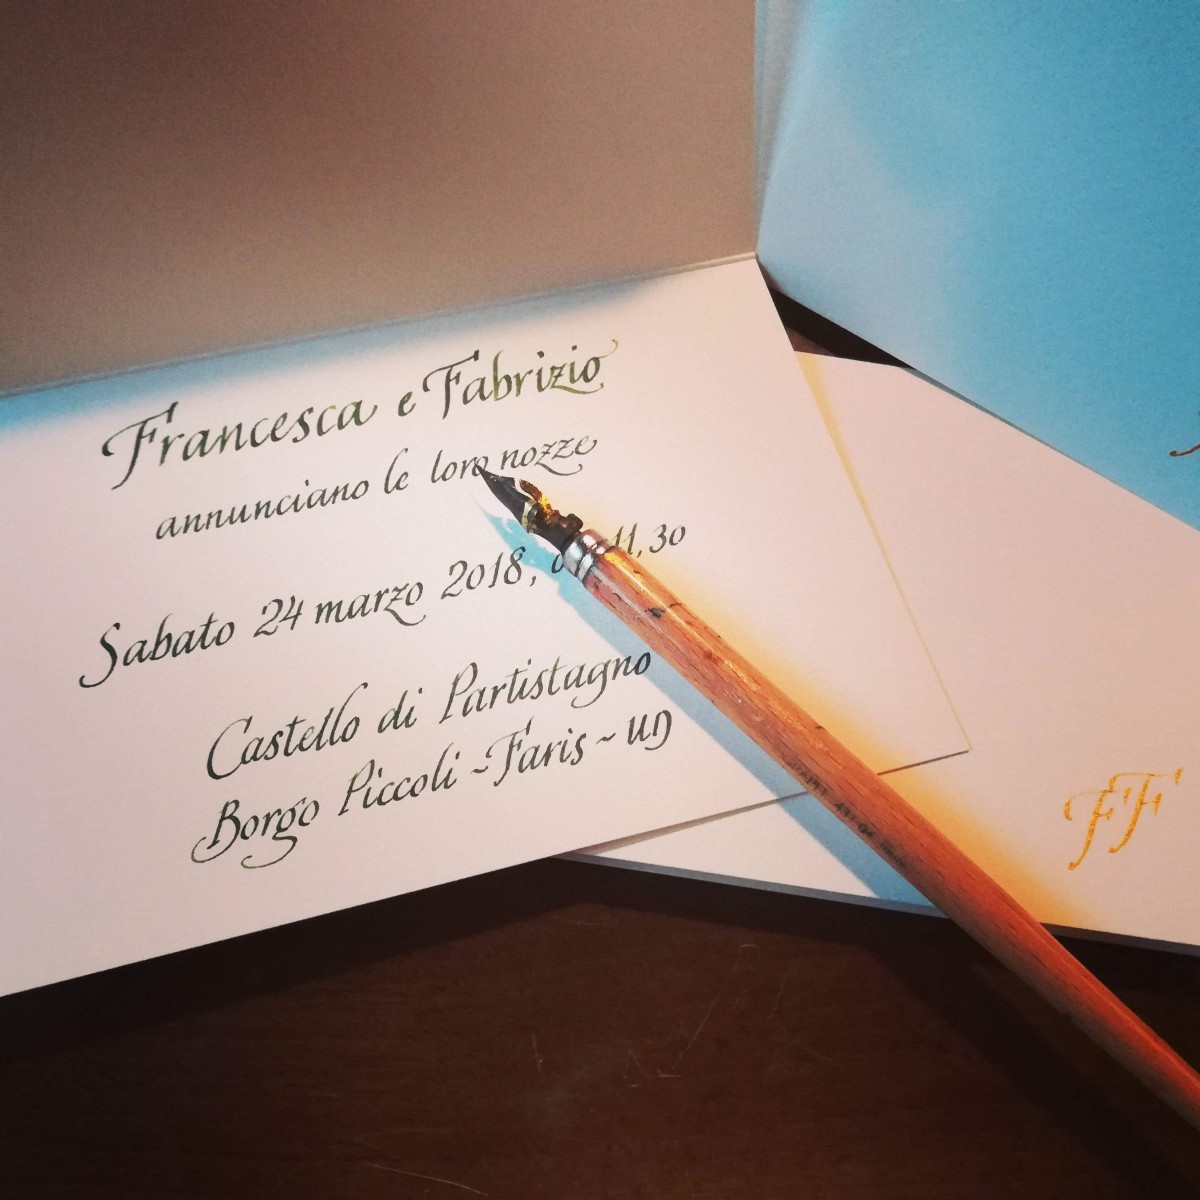 Francesca e Fabrizio
annunciano le loro nozze
Sabato 24 marzo 2018, 11,30
Castello di Partistagno
Borgo Piccoli ~ Faris ~ UD
FF